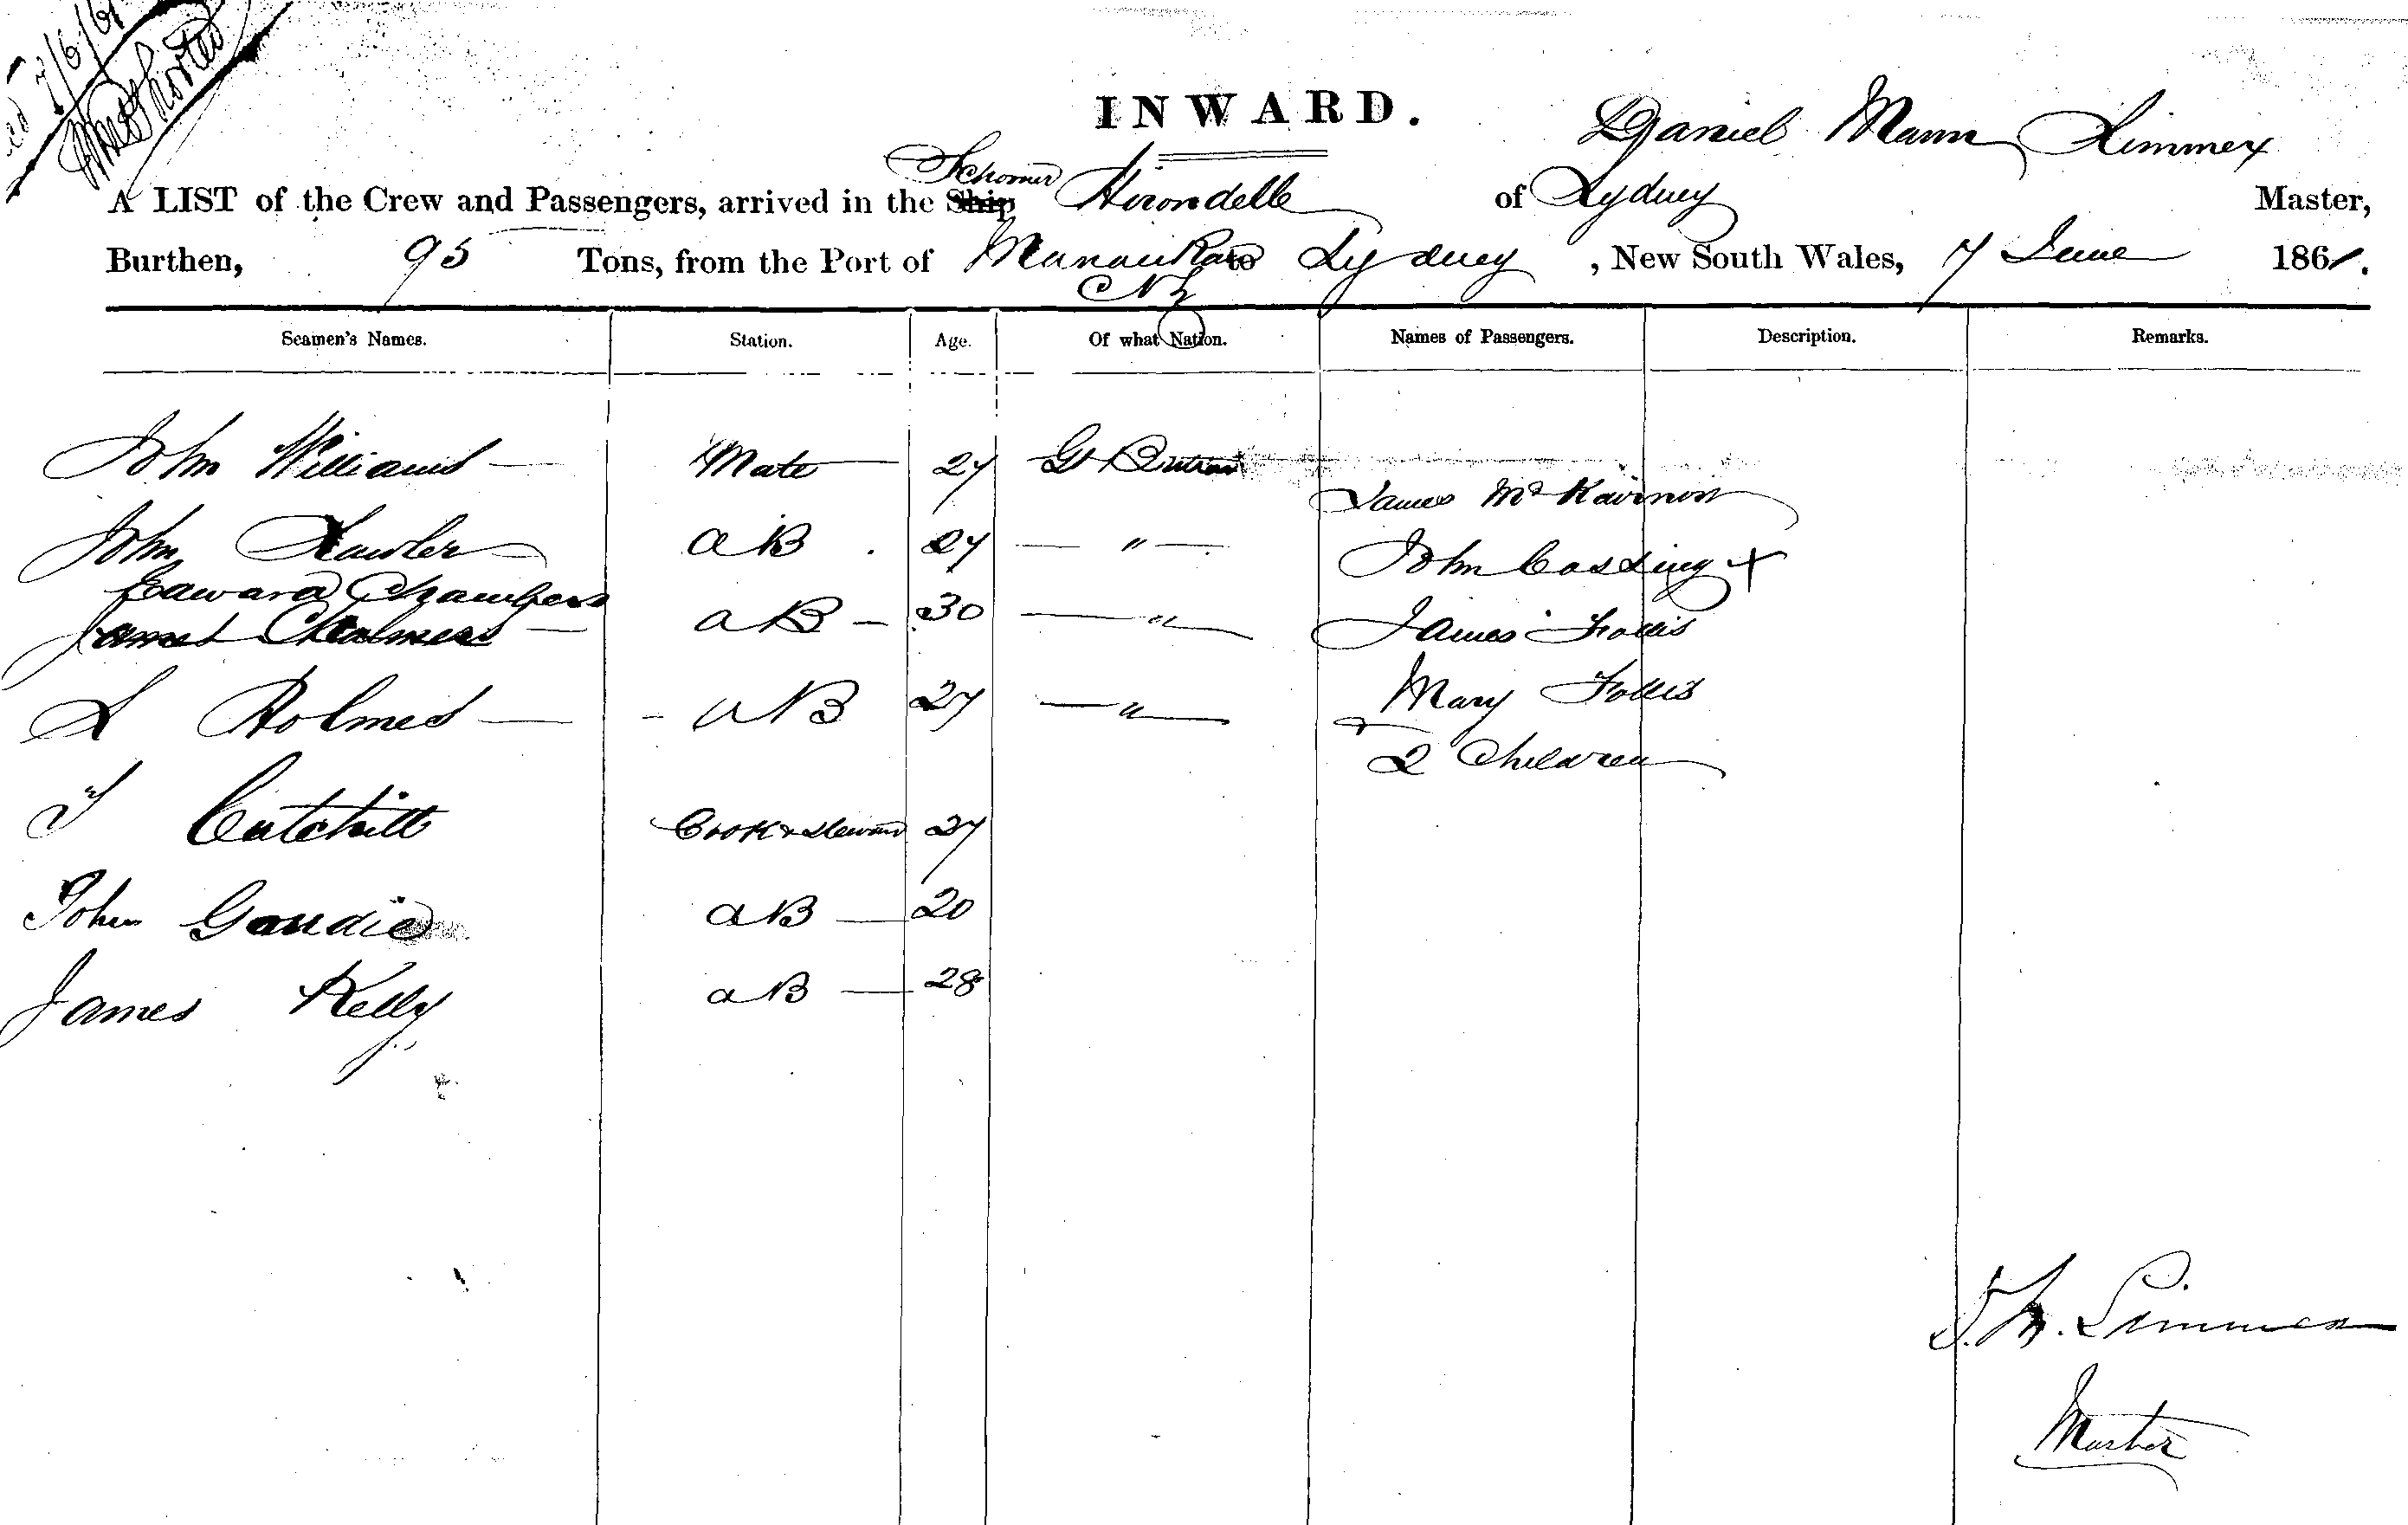 7/6/61
INWARD.
Daniel Mann Limmex
A LIST of the Crew and Passengers, arrived in the Ship Schooner Hirondelle of Sydney Master,
Burthen, 95 Tons, from the Port of Manaukau to Sydney, New South Wales, 7 June 1861.
NZ
Seamen's Names. Station. Age. Of what Nation. Names of Passengers. Description. Remarks.
John Williams Mate 27 Gt Britain
James McKinnon
John Lawler AB 27 " John Cossing +
Edward Chambers
James Chalmers AB 30 " James Follis
L Holmes AB 27 " Mary Follis
2 Children
T Cutchill Cook & Steward 27
John Gaudie AB 20
James Kelly AB 28
D. M. Limmex
Master